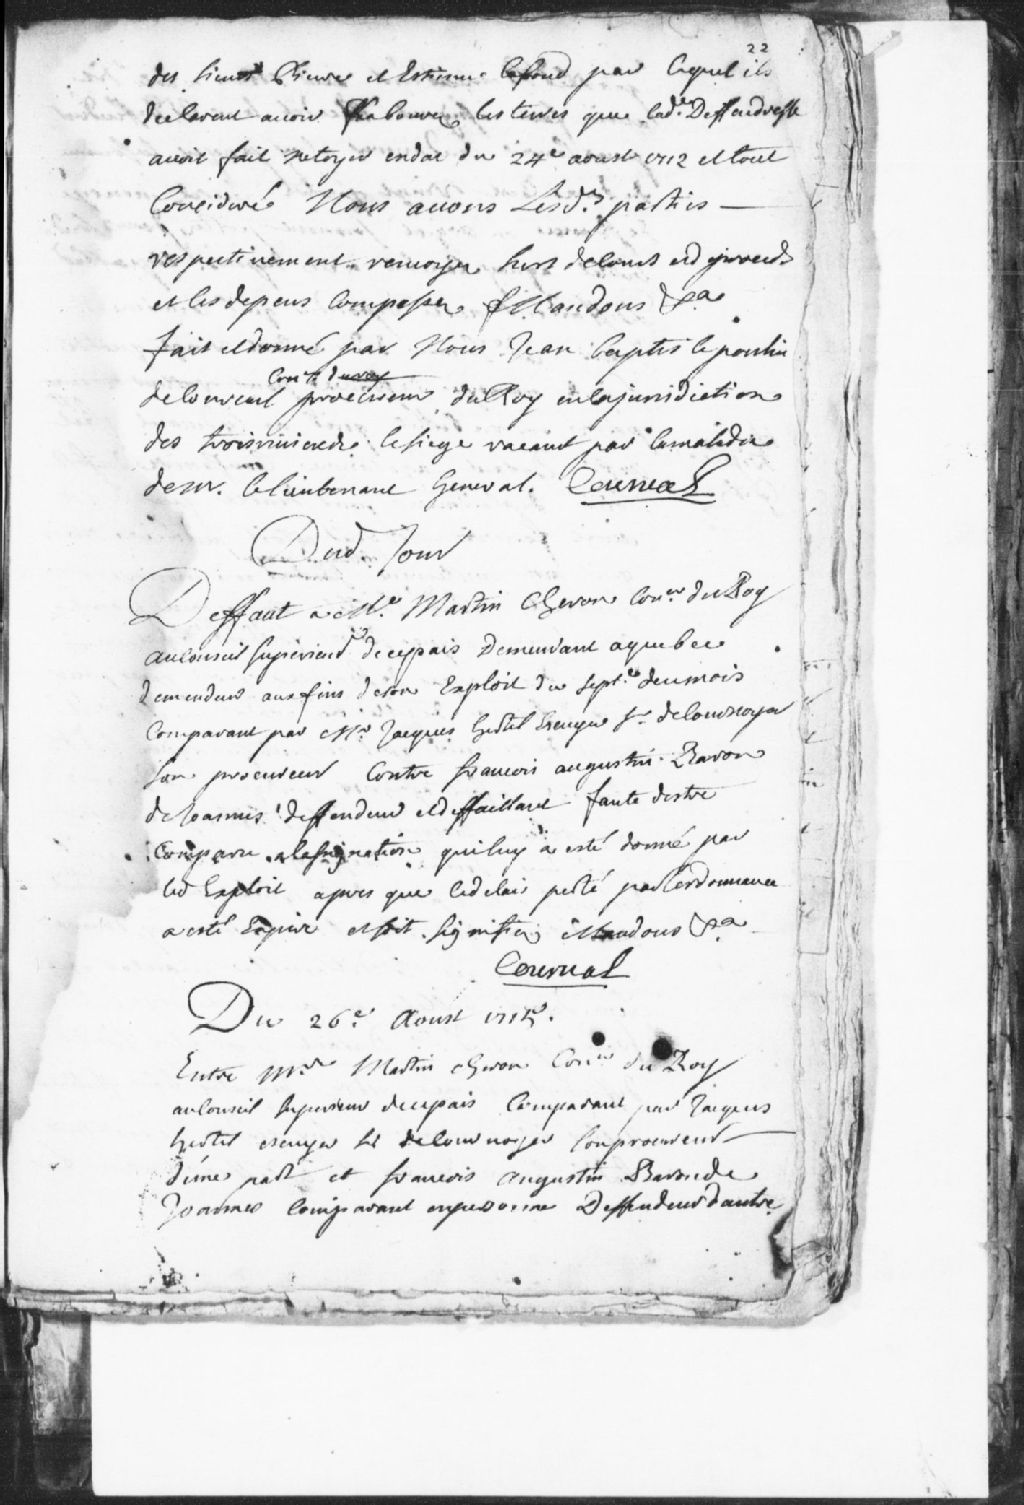 22
des Sieurs Pierre et Estienne lafond par lequel ils
declarent avoir labouré les terres que lad.e Deffendresse
avoit fait netoyer endat du 24e aoust 1712 et tout
Consideré Nous avons Lesd.s parties
respectivement renvoyer hors de Cours et de proceds
et les depens Compensez Mandons &a
fait et donné par Nous Jean baptiste poulin
de Courval procureur du Roy en la jurisdiction
des trois rivieres le siege vacant par la maladie
de mr. le lieutenant General. Courval
Dud. Jour
Deffaut a Mr. Martin Cheron Con.er du Roy
au Conseil Superieur de ce pais Demeurant a quebec
demendeur aux fins de son Exploit du sept.e de ce mois
Comparant par Mr. Jacques hertel Escuyer Sr. de Cournoyer
son procureur Contre francois augustin Baron
de Joannes deffendeur et deffaillant faute destre
Comparu a lassignation qui luy a esté donné par
led Exploit apres que le delais porté par lordonnance
a esté Expiré et soit signiffié Mandons &a
Courval
Du 26e Aoust 1715.
Entre Mr. Martin cheron Con.er du Roy
au Conseil Superieur de ce pais Comparant par Jacques
hertel escuyer Sr de Cournoyer son procureur
dune part et francois augustin Baron de
Joannes Comparant en personne Deffendeur dautre